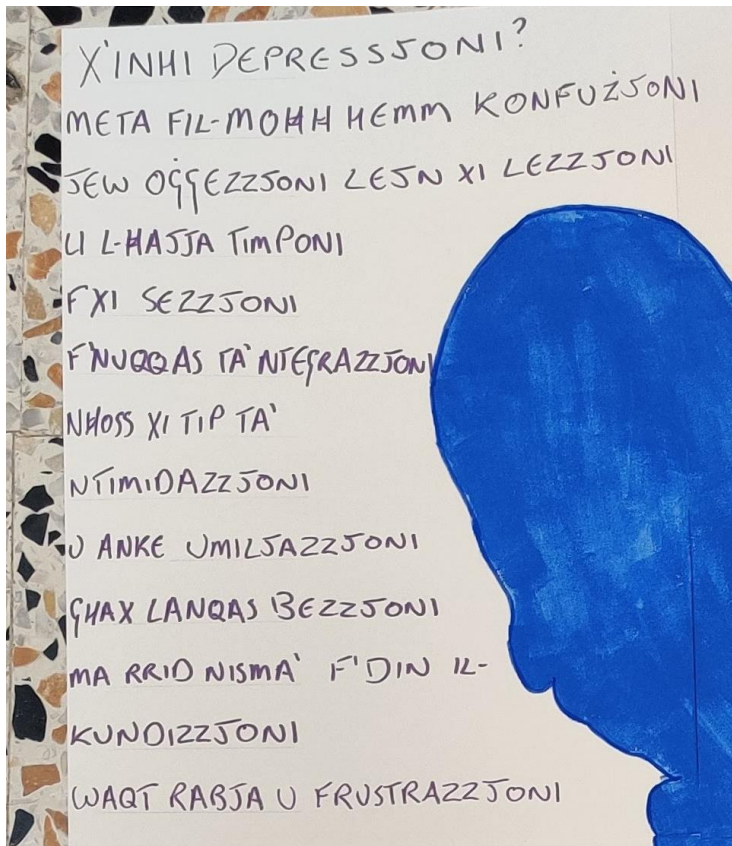 X'INHI DEPRESSJONI?
META FIL-MOĦĦ HEMM KONFUŻJONI
JEW OĠĠEZZJONI LEJN XI LEZZJONI
LI L-ĦAJJA TIMPONI
F'XI SEZZJONI
F'NUQQAS TA' NTEGRAZZJONI
NĦOSS XI TIP TA'
NTIMIDAZZJONI
U ANKE UMILJAZZJONI
GĦAX LANQAS BEZZJONI
MA RRID NISMA' F'DIN IL-
KUNDIZZJONI
WAQT RABJA U FRUSTRAZZJONI